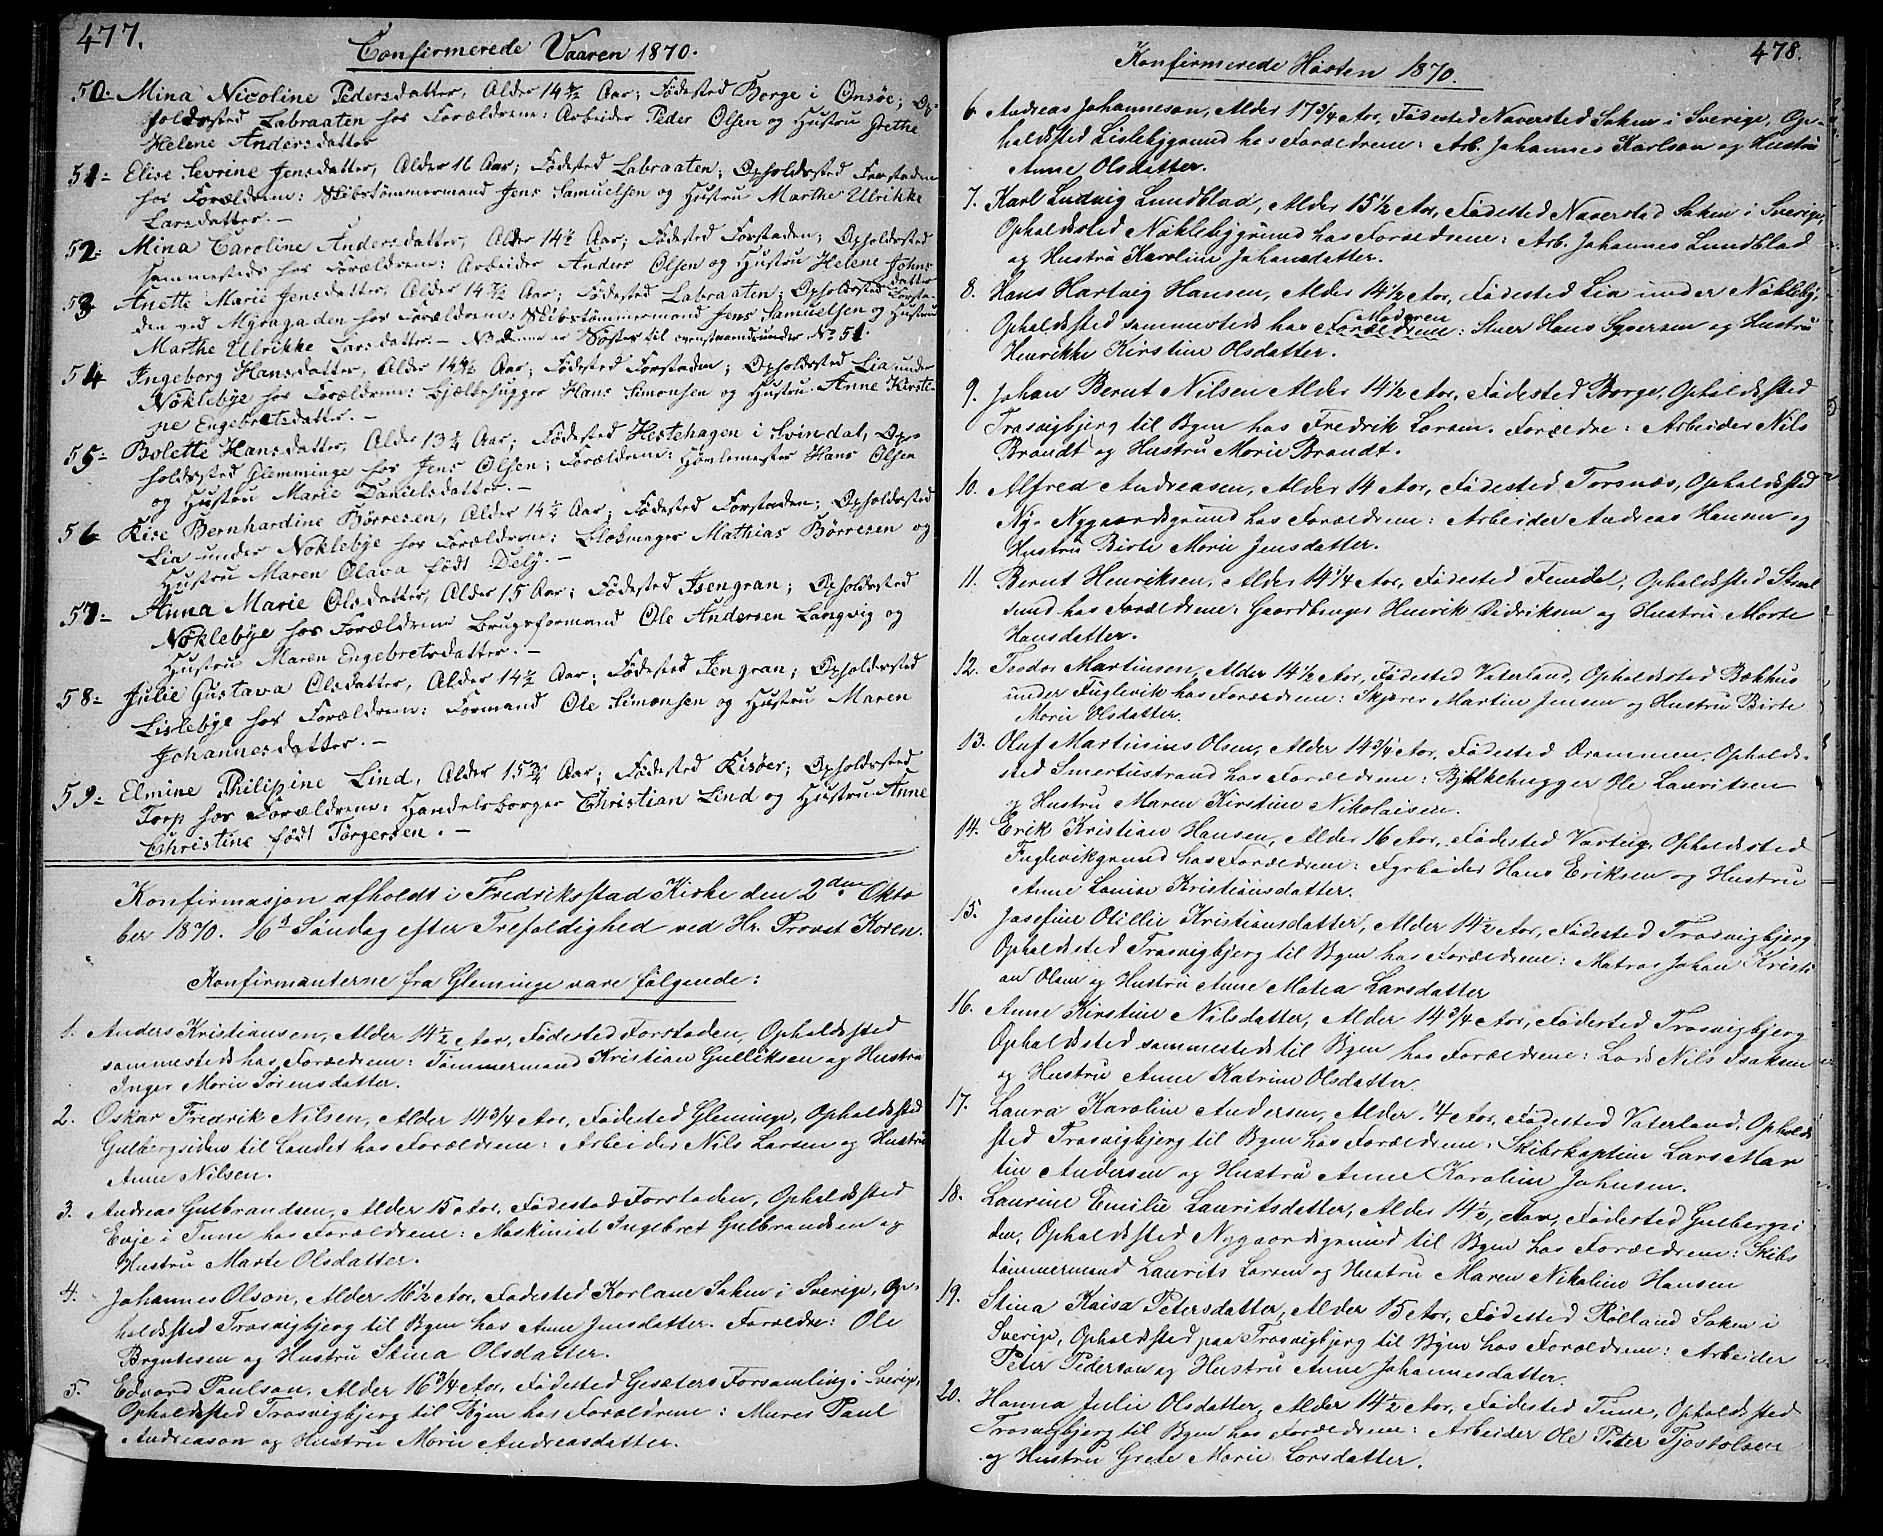 477.
Confirmerede Vaaren 1870.
50- Mina Nicoline Pedersdatter, Alder 14 1/2 Aar; Fødested Borge i Onsøe; Op-
holdssted Labraaten hos Forældrene: Arbeider Peder Olsen og Hustru Grethe
Helene Andersdatter
51- Elise Sevrine Jensdatter, Alder 16 Aar; Fødested Labraaten; Opholdssted Forstaden
hos Forældrene: Skibstømmermand Jens Samuelsen og Hustru Marthe Ulrikke
Larsdatter. -
52- Mina Caroline Andersdatter, Alder 14 1/2 Aar; Fødested Forstaden; Opholdssted
sammesteds hos Forældrene: Arbeider Anders Olsen og Hustru Helene Johns
datter
53 Anette Marie Jensdatter, Alder 14 1/2 Aar; Fødested Labraaten; Opholdssted Forsta-
den ved hos Forældrene: Skibstømmermand Jens Samuelsen og Hustru
Marthe Ulrikke Larsdatter. - er Søster til under No 51.
54 Ingeborg Hansdatter, Alder 14 1/2 Aar; Fødested Forstaden; Opholdssted Lia under
Nøklebye hos Forældrene: Bjælkehugger Hans Simonsen og Hustru Anne Kirsti-
ne Engebretsdatter. -
55- Bolette Hansdatter, Alder 13 1/2 Aar; Fødested Hestehagen i Svindal, Op-
holdssted Glemminge hos Jens Olsen; Forældrene: Høvlemester Hans Olsen
og Hustru Marie Danielsdatter. -
56 Lise Bernhardine Børresen, Alder 14 1/2 Aar; Fødested Forstaden; Opholdssted
Lia under Nøklebye hos Forældrene: Blokmager Mathias Børresen og
Hustru Maren Olava født Dely. -
57- Anna Marie Olsdatter, Alder 15 Aar; Fødested Isengran; Opholdssted
Nøklebye hos Forældrene Brugsformand Ole Andersen Langvig og
Hustru Maren Engebretsdatter. -
58- Julie Gustava Olsdatter, Alder 14 1/2 Aar; Fødested Isengran; Opholdssted
Lislebye hos Forældrene: Formand Ole Simonsen og Hustru Maren
Johannesdatter. -
59- Elmine Philipine Lind, Alder 15 3/4 Aar; Fødested Risøer; Opholdssted
Torp hos Forældrene: Handelsborger Christian Lind og Hustru Anne
Christine født Torgersen. -
Konfirmasjon afholdt i Fredriksstad Kirke den 2den Okto
ber 1870. 16s Søndag efter Trefoldighed ved Hr. Provst Koren.
Konfirmanterne fra Gleminge vare følgende:
1. Anders Kristiansen, Alder 14 1/2 Aar, Fødested Forstaden, Opholdssted
sammesteds hos Forældrene: Tømmermand Kristian Gulliksen og Hustru
Inger Marie Sørensdatter.
2. Oskar Fredrik Nilsen, Alder 14 3/4 Aar, Fødested Gleminge, Opholdssted
Gulbergsiden til Landet hos Forældrene: Arbeider Nils Larsen og Hustru
Anne Nilsen.
3. Andreas Gulbrandsen, Alder 15 Aar, Fødested Forstaden, Opholdssted
Evje i Tune hos Forældrene: Maskinist Ingebret Gulbrandsen og
Hustru Marte Olsdatter.
4. Johannes Olson, Alder 16 1/2 Aar, Fødested Korlane Soken i Sverige, Op-
holdssted Trosvigbjerg til Byen hos Anne Jensdatter. Forældre: Ole
Bryntesen og Hustru Stina Olsdatter.
5. Edvard Paulson, Alder 16 3/4 Aar, Fødested Gesæters Forsamling i Sverige,
Opholdssted Trosvigbjerg til Byen hos Forældrene: Murer Paul
Andreason og Hustru Marie Andreasdatter.
478.
Konfirmerede Høsten 1870.
6 Andreas Johanneson, Alder 17 3/4 Aar, Fødested Naversted Soken i Sverige, Op-
holdssted Lislebygrund hos Forældrene: Arb. Johannes Karlson og Hustru
Anne Olsdatter.
7. Karl Ludvig Lundblad, Alder 15 1/2 Aar, Fødested Naverstad Soken i Sverige,
Opholdssted Nøklebygrund hos Forældrene: Arb. Johannes Lundblad
og Hustru Karoline Johansdatter.
8. Hans Hartvig Hansen, Alder 14 1/2 Aar, Fødested Lia under Nøkleby,
Opholdssted sammesteds hos Forældrene: Moderen Stuer Hans Syversen og Hustru
Henrikke Kirstine Olsdatter.
9. Johan Bernt Nilsen Alder 14 1/2 Aar, Fødested Borge, Opholdssted
Trosvigbjerg til Byen hos Fredrik Larsen. Forældre: Arbeider Nils
Brandt og Hustru Marie Brandt.
10. Alfred Andreasen, Alder 14 Aar, Fødested Torsnæs, Opholdssted
Ny- Nygaardsgrund hos Forældrene: Arbeider Andreas Hansen og
Hustru Birte Marie Jensdatter.
11. Bernt Henriksen, Alder 14 1/4 Aar, Fødested Femdal, Opholdssted Strøm
sund hos Forældrene: Gaardbruger Henrik Didriksen og Hustru Marte
Hansdatter.
12. Teodor Martinsen, Alder 14 1/2 Aar, Fødested Vaterland, Opholdssted Bækhus
under Fuglevik hos Forældrene: Skjærer Martin Jensen og Hustru Birte
Marie Olsdatter.
13. Oluf Martinius Olsen, Alder 14 3/4 Aar, Fødested Drammen, Opholds-
sted Smertustrand hos Forældrene: Bjelkehugger Ole Lauritsen
og Hustru Maren Kirstine Nikolaisen.
14. Erik Kristian Hansen, Alder 16 Aar, Fødested Varteig, Opholdssted
Fuglevikgrund hos Forældrene: Fyrbøder Hans Eriksen og Hustru
Anne Louise Kristiansdatter.
15. Josefine Otillie Kristiansdatter, Alder 14 1/2 Aar, Fødested Trosvigbjerg
Opholdssted Trosvigbjerg til Byen hos Forældrene: Matros Johan Kristi
an Olsen og Hustru Anne Matea Larsdatter
16. Anne Kirstine Nilsdatter, Alder 14 3/4 Aar, Fødested Trosvigbjerg
Opholdssted sammesteds til Byen hos Forældrene: Lods Nils Isaksen
og Hustru Anne Katrine Olsdatter.
17. Laura Karoline Andersen, Alder 14 Aar, Fødested Vaterland, Opholds
sted Trosvigbjerg til Byen hos Forældrene: Skibskaptein Lars Mar
tin Andersen og Hustru Anne Karoline Johnsen.
18. Laurine Emilie Lauritsdatter, Alder 14 1/2 Aar, Fødested Gulbergsi
den, Opholdssted Nygaardsgrund til Byen hos Forældrene: Skibs
tømmermand Laurits Larsen og Hustru Maren Nikoline Hansen
19. Stina Kaisa Petersdatter, Alder 15 Aar, Fødested Rølland Soken i
Sverige, Opholdssted paa Trosvigbjerg til Byen hos Forældrene: Arbeider
Peter Pederson og Hustru Anne Johannesdatter.
20. Hanna Julie Olsdatter, Alder 14 1/2 Aar, Fødested Tune, Opholdssted
Trosvigbjerg til Byen hos Forældrene: Arbeider Ole Peter Tjostolsen
og Hustru Grete Marie Larsdatter.